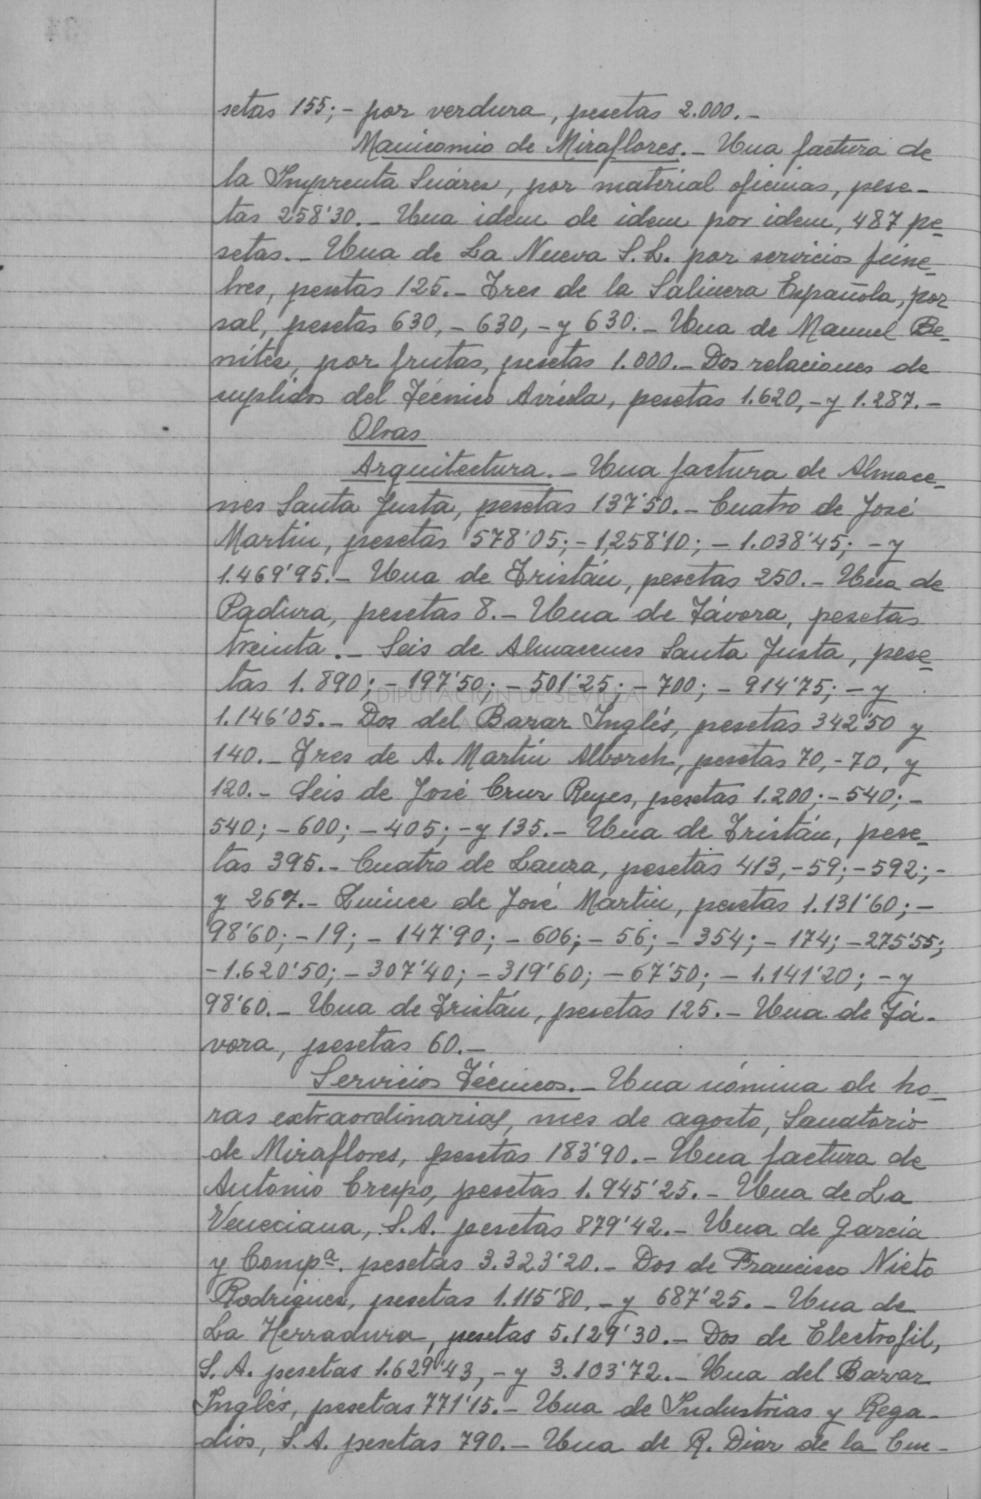 setas 155; - por verdura, pesetas 2.000. -
Manicomio de Miraflores. - Una factura de
la Imprenta Suárez, por material oficinas, pese-
tas 258'30. - Una idem de idem por idem, 487 pe-
setas. - Una de La Nueva S.L. por servicios fúne-
bres, pesetas 125. - Tres de la Salinera Española, por
sal, pesetas 630, - 630, - y 630. - Una de Manuel Be-
nitez, por frutas, pesetas 1.000. - Dos relaciones de
suplidos del Técnico Arreola, pesetas 1.620, - y 1.287. -
Obras
Arquitectura. - Una factura de Almace-
nes Santa Justa, pesetas 137'50. - Cuatro de José
Martin, pesetas 578'05; - 1,258'10; - 1.038'45; - y
1.469'95. - Una de Tristán, pesetas 250. - Una de
Padura, pesetas 8. - Una de Távora, pesetas
treinta. - Seis de Almacenes Santa Justa, pese-
tas 1.890; - 197'50; - 501'25; - 700; - 914'75; - y
DIPUTACIÓN DE SEVILLA
1.146'05. - Dos del Bazar Inglés, pesetas 342'50 y
140. - Tres de A. Martin Alborch, pesetas 70, - 70, y
120. - Seis de José Cruz Reyes, pesetas 1.200; - 540; -
540; - 600; - 405; - y 135. - Una de Tristán, pese-
tas 395. - Cuatro de Laura, pesetas 413, - 59; - 592; -
y 267. - Quince de José Martin, pesetas 1.131'60; -
98'60; - 19; - 147'90; - 606; - 56; - 354; - 174; - 275'55;
- 1.620'50; - 307'40; - 319'60; - 67'50; - 1.141'20; - y
98'60. - Una de Tristán, pesetas 125. - Una de Tá-
vora, pesetas 60. -
Servicios Técnicos. - Una nómina de ho-
ras extraordinarias, mes de agosto, Sanatorio
de Miraflores, pesetas 183'90. - Una factura de
Antonio Crespo, pesetas 1.945'25. - Una de La
Veneciana, S.A. pesetas 879'42. - Una de Garcia
y Compª. pesetas 3.323'20. - Dos de Francisco Nieto
Rodriguez, pesetas 1.115'80, - y 687'25. - Una de
La Herradura, pesetas 5.129'30. - Dos de Electrofil,
S.A. pesetas 1.629'43, - y 3.103'72. - Una del Bazar
Inglés, pesetas 771'15. - Una de Industrias y Rega-
dios, S.A. pesetas 790. - Una de R. Diaz de la Cue-